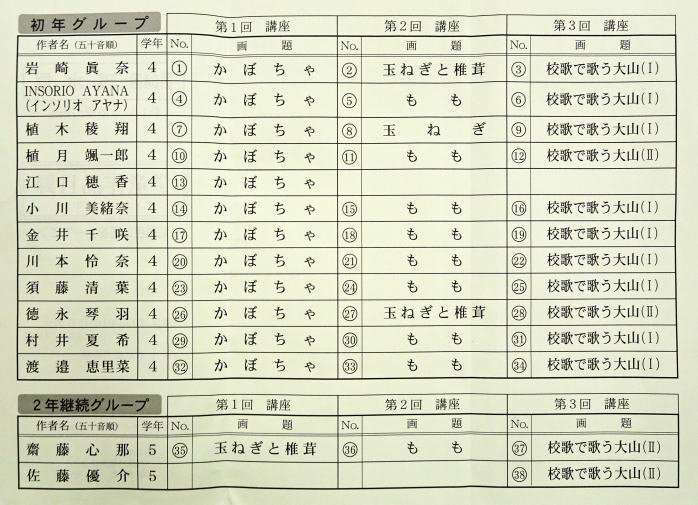 初年グループ 第1回 講座 第2回 講座 第3回 講座
作者名(五十音順) 学年 No. 画題 No. 画題 No. 画題
岩崎眞奈 4 ① かぼちゃ ② 玉ねぎと椎茸 ③ 校歌で歌う大山(Ⅰ)
INSORIO AYANA
(インソリオ アヤナ) 4 ④ かぼちゃ ⑤ もも ⑥ 校歌で歌う大山(Ⅰ)
植木稜翔 4 ⑦ かぼちゃ ⑧ 玉ねぎ ⑨ 校歌で歌う大山(Ⅰ)
植月颯一郎 4 ⑩ かぼちゃ ⑪ もも ⑫ 校歌で歌う大山(Ⅱ)
江口穂香 4 ⑬ かぼちゃ
小川美緒奈 4 ⑭ かぼちゃ ⑮ もも ⑯ 校歌で歌う大山(Ⅰ)
金井千咲 4 ⑰ かぼちゃ ⑱ もも ⑲ 校歌で歌う大山(Ⅰ)
川本怜奈 4 ⑳ かぼちゃ ㉑ もも ㉒ 校歌で歌う大山(Ⅰ)
須藤清葉 4 ㉓ かぼちゃ ㉔ もも ㉕ 校歌で歌う大山(Ⅰ)
徳永琴羽 4 ㉖ かぼちゃ ㉗ 玉ねぎと椎茸 ㉘ 校歌で歌う大山(Ⅱ)
村井夏希 4 ㉙ かぼちゃ ㉚ もも ㉛ 校歌で歌う大山(Ⅰ)
渡邉恵里菜 4 ㉜ かぼちゃ ㉝ もも ㉞ 校歌で歌う大山(Ⅰ)
2年継続グループ 第1回 講座 第2回 講座 第3回 講座
作者名(五十音順) 学年 No. 画題 No. 画題 No. 画題
齋藤心那 5 ㉟ 玉ねぎと椎茸 ㊱ もも ㊲ 校歌で歌う大山(Ⅱ)
佐藤優介 5 ㊳ 校歌で歌う大山(Ⅱ)